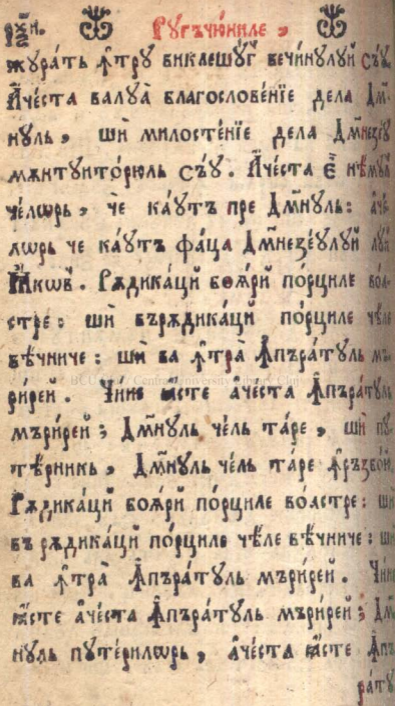 рѯи. Ругъчюниле,
жура́ть ꙟ҆тру викаешу́г вечинулуй съу.
А҆че́ста валуа̀ благослове́нїе дела Дм҃-
нуль, шѝ милосте́нїе дела Дм҃незе́у
мѫнтуито́рюль съ́у. А҆че́ста є҆́ нѣ́мул
че́лѡрь, че ка́утъ пре Дм҃нуль: а҆че́-
лѡрь че ка́утъ фа́ца Дм҃незе́улуй луй
І҆а́кѡв. Рѫдика́цй боѧ́рй по́рциле воа́-
стре: шѝ върѫдика́цй по́рциле че́ле
вѣ́чниче: шѝ ва ꙟ҆тра̀ А҆пъра́туль мъ-
ри́рей. Чи́не ꙗ҆́сте ачеста А҆пъра́туль
мъри́рей; Дм҃нуль че́ль та́ре, шѝ пу-
те́рникь, Дм҃нуль че́ль та́ре ꙟ҆ръзбо́й.
Рѫдика́цй боѧ́рй по́рциле воа́стре: шѝ
въ рѫдика́цй по́рциле че́ле вѣ́чниче: шѝ
ва ꙟ҆тра̀ А҆пъра́туль мъри́рей. Чи́не
ꙗ҆́сте а҆че́ста А҆пъра́туль мъри́рей; Дм҃-
нуль путе́рилѡрь, а҆че́ста ꙗ҆́сте А҆пъ-
ра́ту